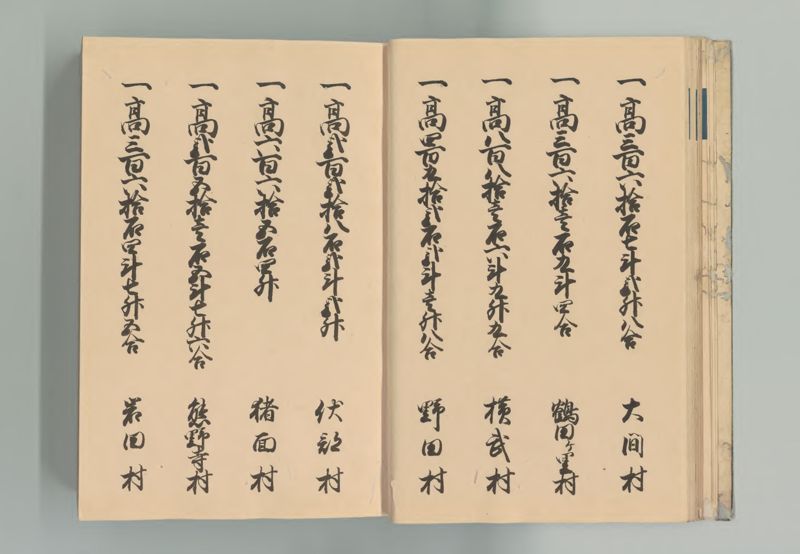 一高三百六拾石七斗弐升八合 大間村
一高三百六拾壱石九斗四合 鶴田ヶ里村
一高八百八拾壱石六斗九升九合 横武村
一高四百九拾弐石弐斗壱升八合 野田村
一高弐百弐拾八石弐斗弐升 伏部村
一高六百六拾五石四升 猪面村
一高弐百五拾壱石五斗七升六合 熊野寺村
一高三百六拾石四斗七升五合 岩田村